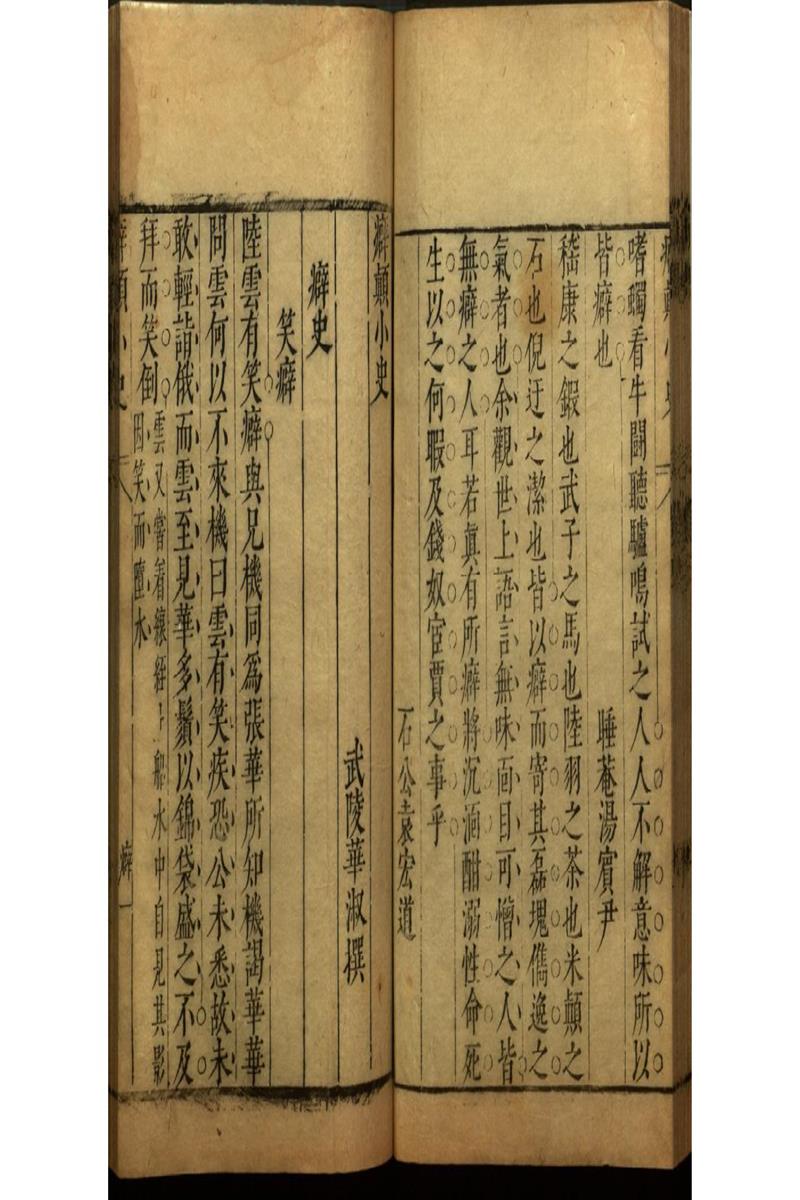 嗜蠲看牛鬪聽驢鳴試之人人不解意味所以
皆癖也
睡菴湯賓尹
嵇康之鍛也武子之馬也陸羽之茶也米顛之
石也倪迂之潔也皆以癖而寄其磊塊儁逸之
氣者也余觀世上語言無味面目可憎之人皆
無癖之人耳若眞有所癖將沉湎酣溺性命死
生以之何暇及錢奴宦賈之事乎
石公袁宏道
癖顛小史
武陵華淑撰
癖史
笑癖
陸雲有笑癖與兄機同爲張華所知機謁華華
問雲何以不來機曰雲有笑疾恐公未悉故未
敢輕詣俄而雲至見華多鬚以錦袋盛之不及
拜而笑倒
雲又嘗着縗絰上船水中自見其影
因笑而墮水
癖顛小史
癖一